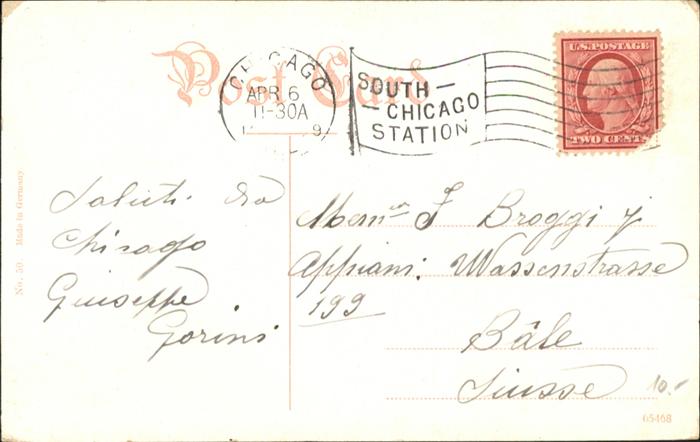 Post Card
CHICAGO
APR 6
11-30A
SOUTH
CHICAGO
STATION
U.S. POSTAGE
TWO CENTS
Saluti da
Chicago
Giuseppe
Gorini
J Broggi
Appiani. Wassenstrasse
199
Bâle
Suisse
10.-
No. 50 Made in Germany
65468